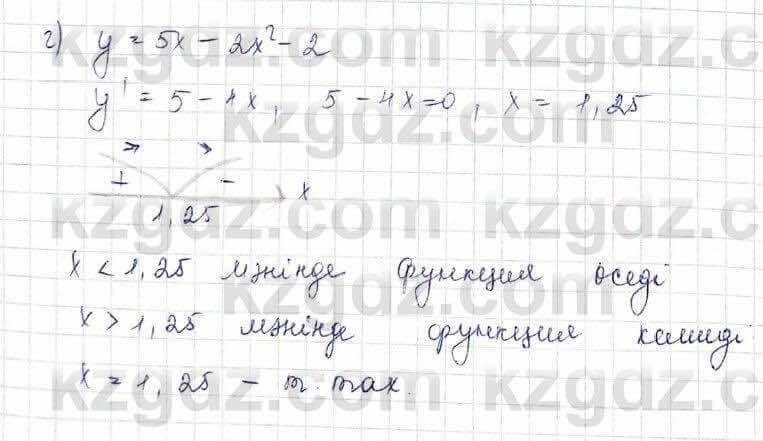 г) y = 5x - 2x² - 2
y' = 5 - 4x, 5 - 4x = 0, x = 1,25
+ - x
1,25
x < 1,25 мәнінде функция өседі
x > 1,25 мәнінде функция кемиді
x = 1,25 - т. max.
kzgdz.com kzgdz.com
kzgdz.com
kzgdz.com kzgdz.com
kzgdz.com
kzgdz.com kzgdz.com